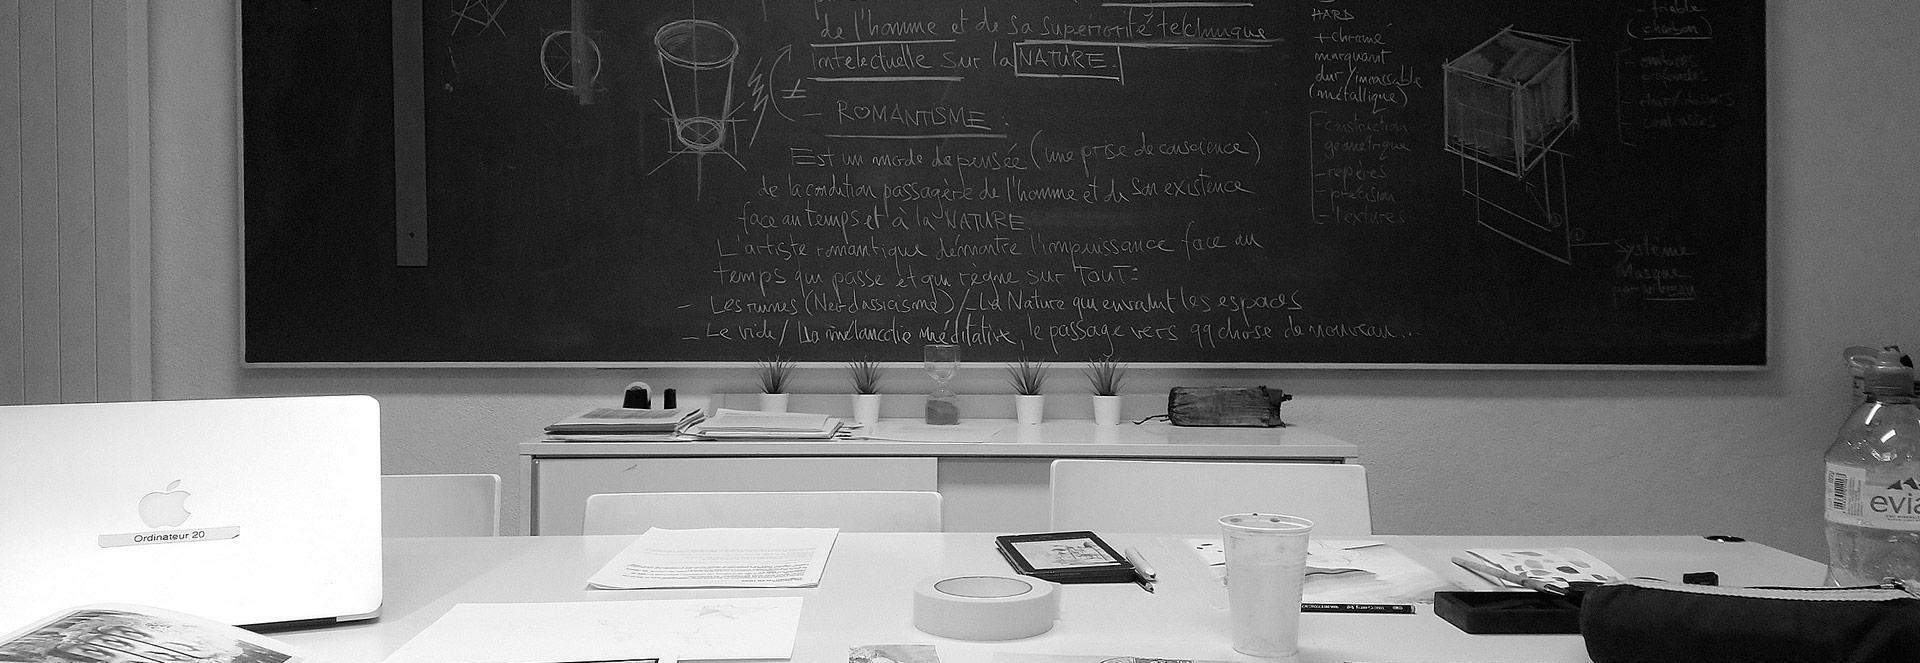 de l'homme et de sa supériorité technique
Intelectuelle sur la NATURE.
- ROMANTISME :
Est un mode de pensée (une prise de conscience)
de la condition passagère de l'homme et de son existence
face au temps et à la NATURE.
L'artiste romantique démontre l'impuissance face au
temps qui passe et qui règne sur TOUT:
- Les ruines (Néoclassicisme) / La Nature qui envahit les espaces
- Le vide / La mélancolie méditative, le passage vers qq chose de nouveau...
HARD
+ chromé
marquant
dur /
(métallique)
- construction
géometrique
- repères
- précision
- textures
- friable
(charbon)
- ombres
profondes
- contrastes
Système
Masque
Ordinateur 20
evia